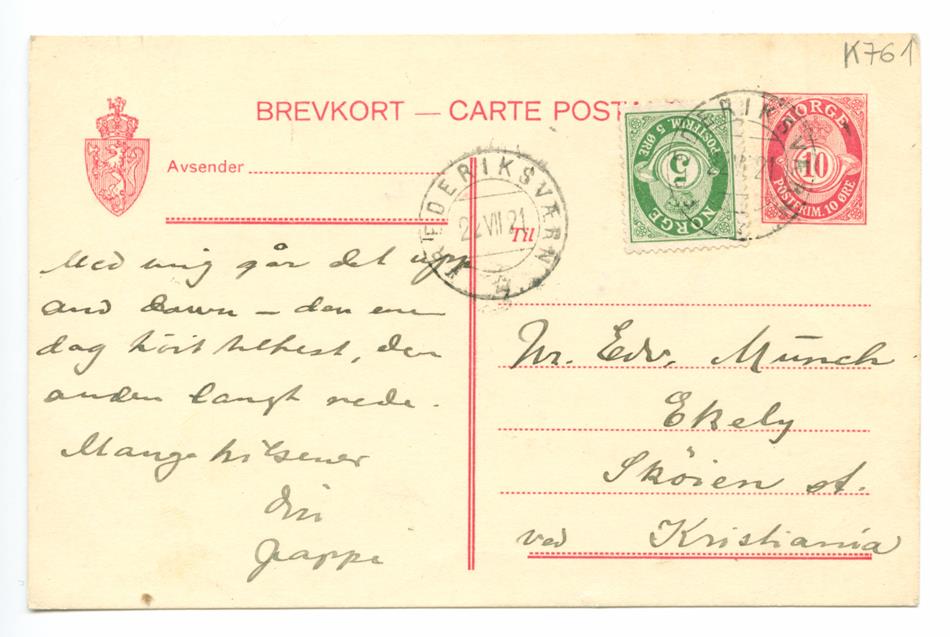 K761
BREVKORT — CARTE POSTA
Avsender
NORGE
POSTFRIM. 5 ØRE
5
NORGE
10
POSTFRIM. 10 ØRE
FREDERIKSVÆRN
22 VII 21
Til
Med mig går det upp
and down – den ene
dag höit tilhest, den
anden langt nede.
Mange hilsener
din
Jappe
Hr. Edv. Münch
Ekely
Sköien st.
ved Kristiania